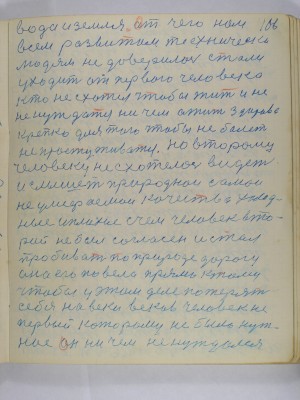 вода и земля. От чего нам 106
всем развитым технически
людям не доверялось стали
уходить от первого человека
кто не схотил чтобы жить и не
не нуждаться ни чем а жить здорово
крепко для того чтобы не болеть
не простуживать. Но второму
человеку не схотелось видеть
и слышать природной самой
не умираемой качества хлад
ные и плохие с чем человек вто-
рый не был согласен и стал
пробивать по природе дорогу
она его повела прямо к тому
чтобы у этом деле потерять
себя на веки веков человек не
первый которому не было нуж-
ное он ни чем не нуждался